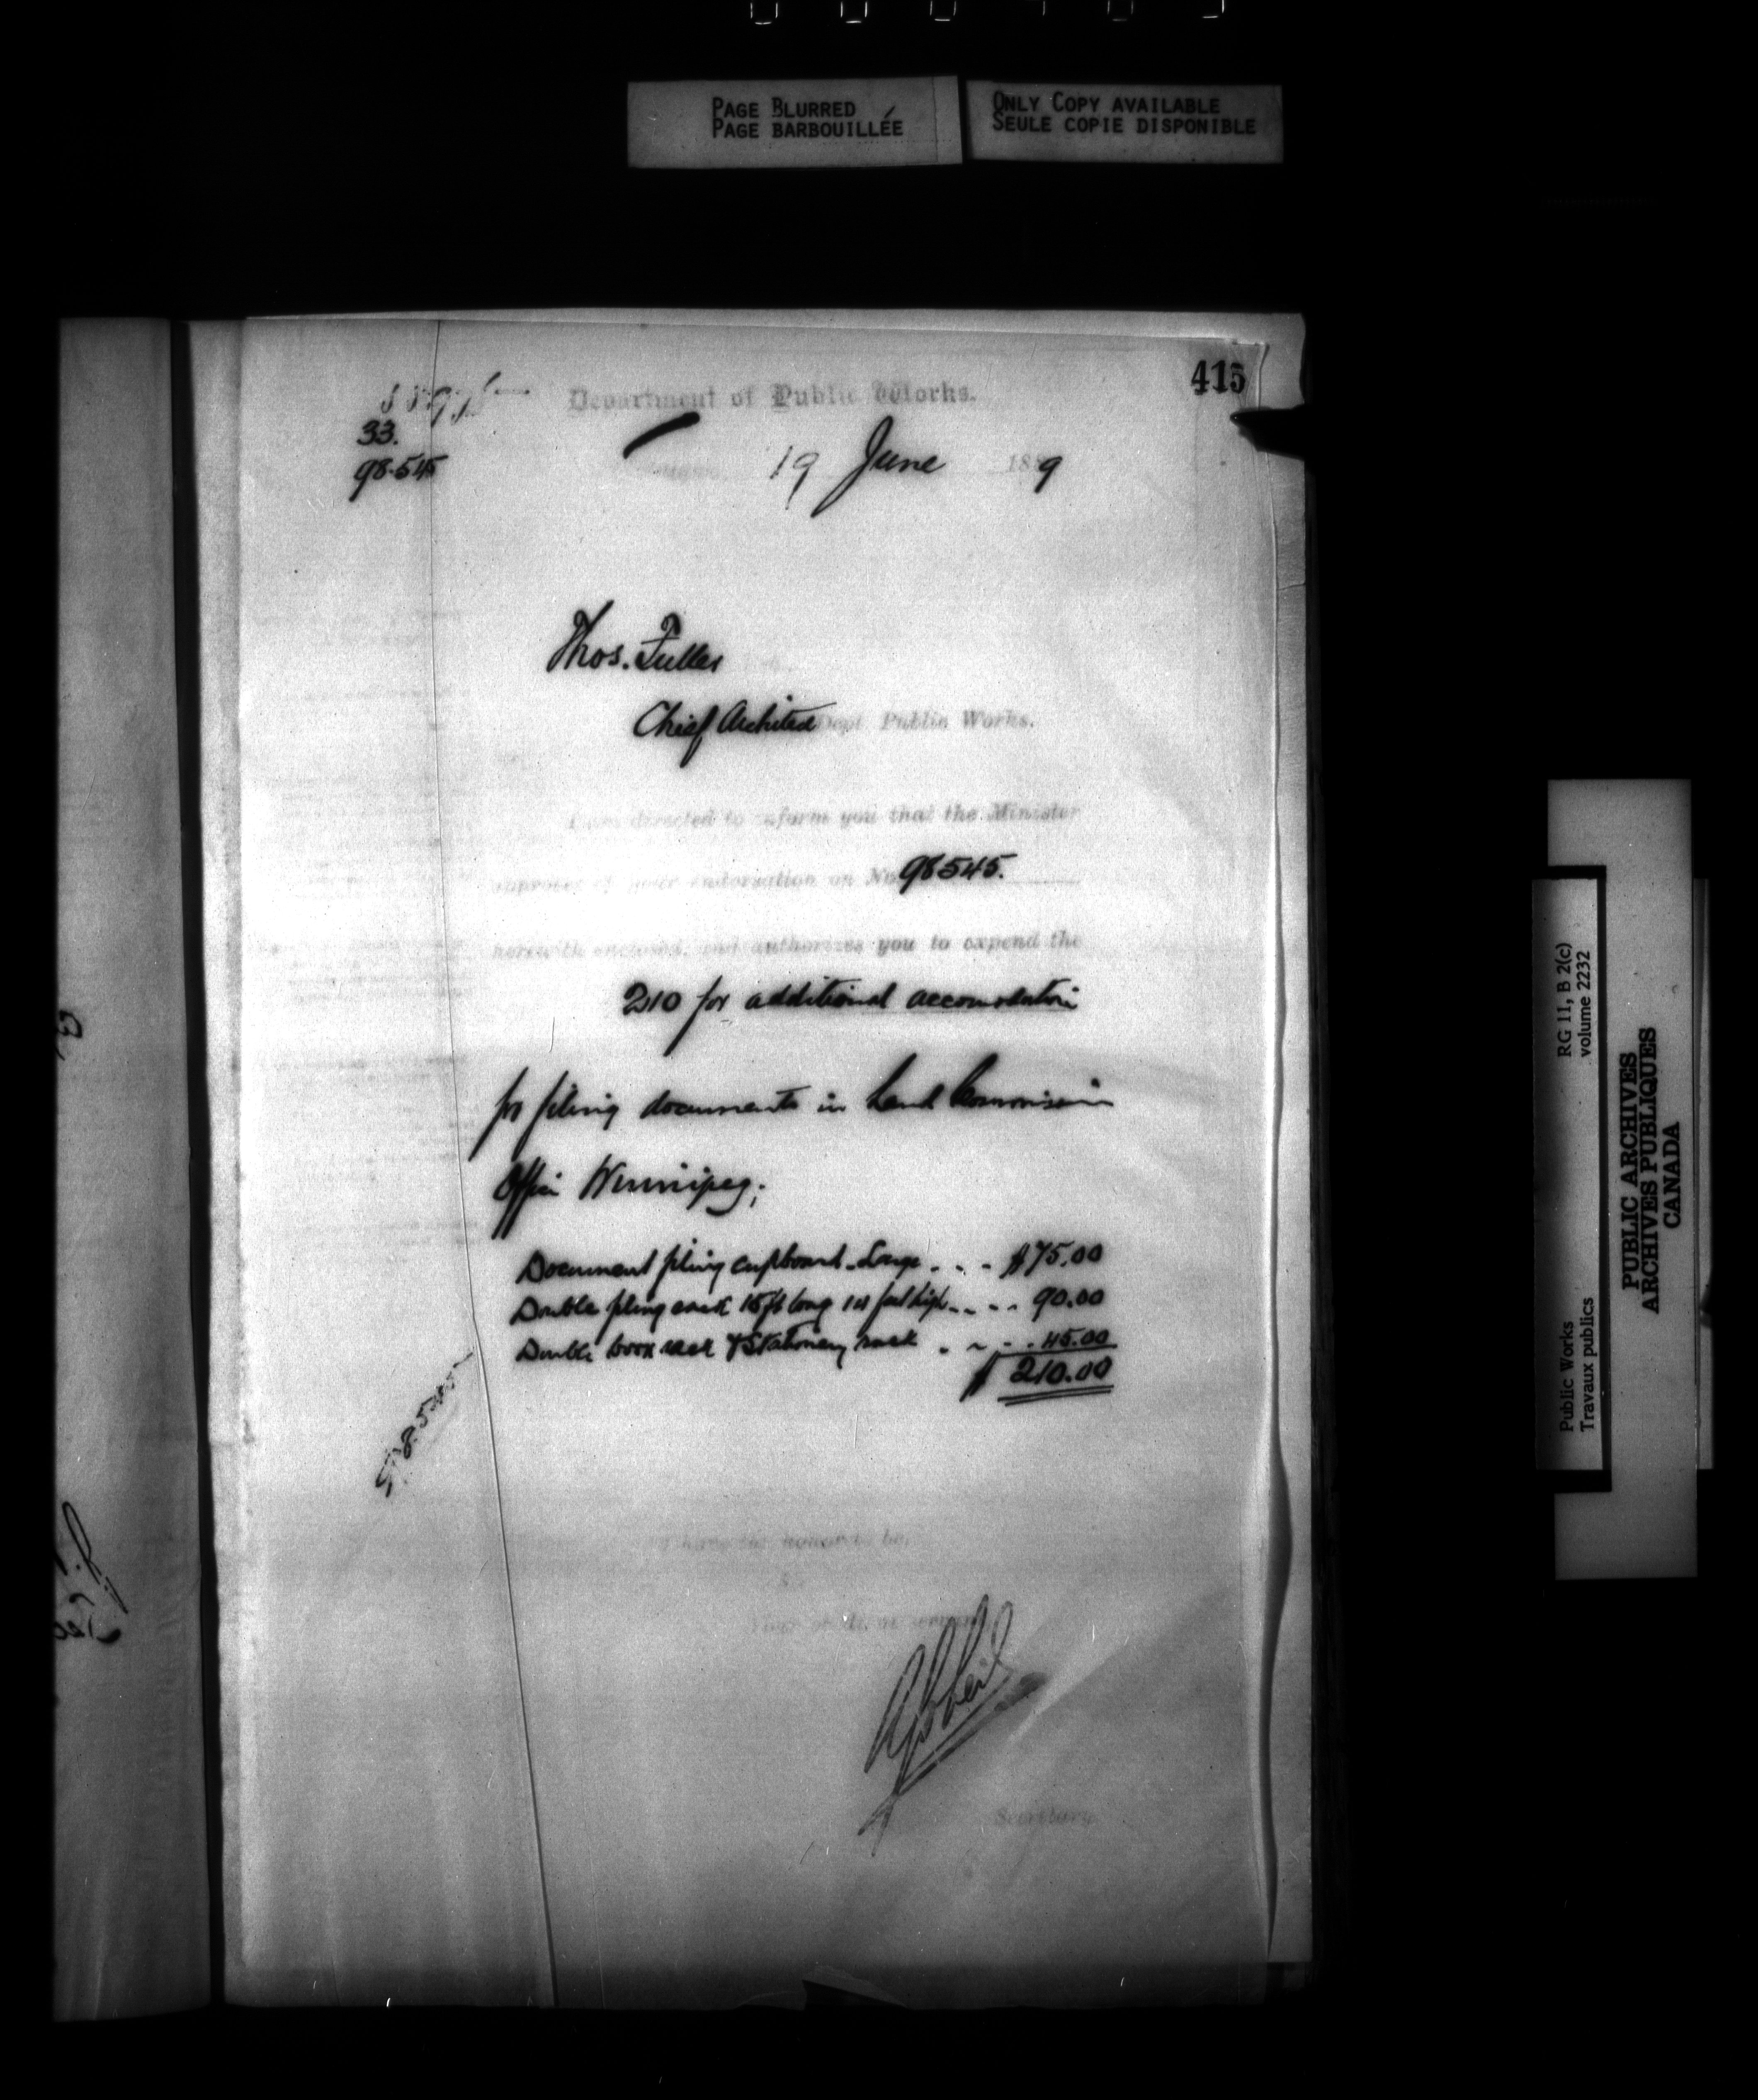 PAGE BLURRED
PAGE BARBOUILLÉE
ONLY COPY AVAILABLE
SEULE COPIE DISPONIBLE
415
Department of Public Works.
33.
98545
19 June 1889
Thos. Fuller
Chief Architect Dept. Public Works.
I am directed to inform you that the Minister
approves of your endorsation on No 98545.
herewith enclosed, and authorizes you to expend the
210 for additional accomodation
for filing documents in Land Commission
Office Winnipeg;
Document filing cupboard - Large . . . $75.00
Double filing rack 15 ft long 10 feet high . . . . 90.00
Double book rack & Stationery rack . . . . 45.00
$ 210.00
98545
I have the honor to be,
Your obedient servant
Secretary.
RG 11, B 2(c)
volume 2232
Public Works
Travaux publics
PUBLIC ARCHIVES
ARCHIVES PUBLIQUES
CANADA